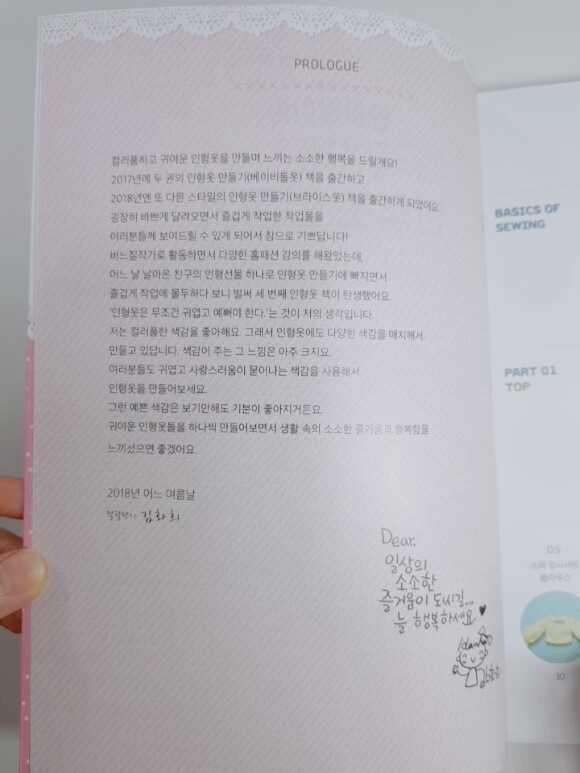 PROLOGUE
컬러풀하고 귀여운 인형옷을 만들며 느끼는 소소한 행복을 드릴게요!
2017년에 두 권의 인형옷 만들기(베이비돌옷) 책을 출간하고
2018년엔 또 다른 스타일의 인형옷 만들기(브라이스옷) 책을 출간하게 되었어요.
굉장히 바쁘게 달려오면서 즐겁게 작업한 작업물을
여러분들께 보여드릴 수 있게 되어서 참으로 기쁘답니다!
바느질작가로 활동하면서 다양한 홈패션 강의를 해왔었는데,
어느 날 날아온 친구의 인형선물 하나로 인형옷 만들기에 빠지면서
즐겁게 작업에 몰두하다 보니 벌써 세 번째 인형옷 책이 탄생했어요.
'인형옷은 무조건 귀엽고 예뻐야 한다.'는 것이 저의 생각입니다.
저는 컬러풀한 색감을 좋아해요. 그래서 인형옷에도 다양한 색감을 매치해서
만들고 있답니다. 색감이 주는 그 느낌은 아주 크지요.
여러분들도 귀엽고 사랑스러움이 묻어나는 색감을 사용해서
인형옷을 만들어보세요.
그런 예쁜 색감은 보기만해도 기분이 좋아지거든요.
귀여운 인형옷들을 하나씩 만들어보면서 생활 속의 소소한 즐거움과 행복함을
느끼셨으면 좋겠어요.
2018년 어느 여름날
김화희
Dear.
일상의
소소한
즐거움이 되시길...
늘 행복하세요 ♥
BASICS OF
SEWING
PART 01
TOP
05
블라우스
30